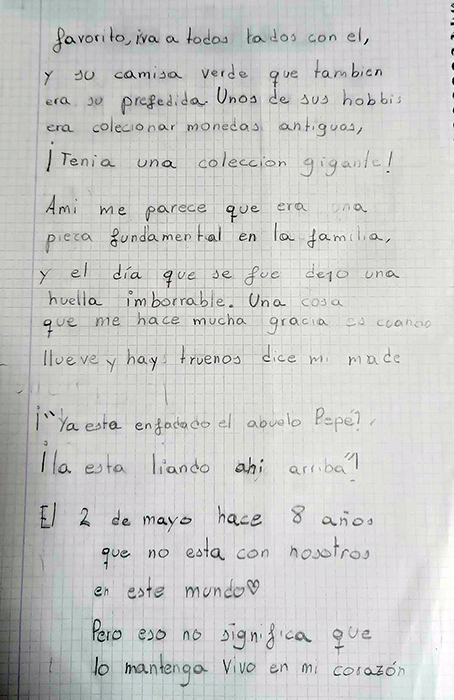 favorito, iva a todos lados con el,
y su camisa verde que tambien
era su prefedida. Unos de sus hobbis
era colecionar monedas antiguas,
¡Tenia una coleccion gigante!
Ami me parece que era una
pieza fundamental en la familia,
y el día que se fue dejo una
huella imborrable. Una cosa
que me hace mucha gracia es cuando
llueve y hay truenos dice mi made
¡"Ya esta enfadado el abuelo Pepé!,
¡la esta liando ahi arriba"!
El 2 de mayo hace 8 años
que no esta con nosotros
en este mundo♡
Pero eso no significa que
lo mantenga vivo en mi corazón